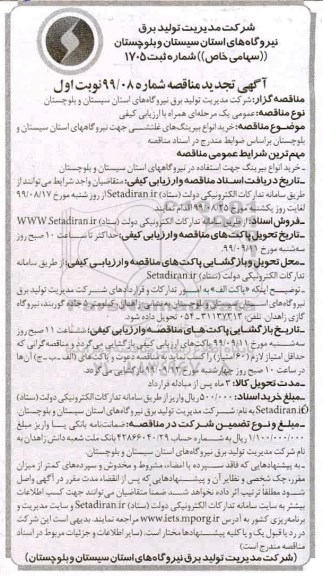 شرکت مدیریت تولید برق
نیروگاه‌های استان سیستان و بلوچستان
((سهامی خاص)) شماره ثبت ۱۷۰۵
آگهی تجدید مناقصه شماره ۹۹/۰۸ نوبت اول
مناقصه گزار: شرکت مدیریت تولید برق نیروگاه‌های استان سیستان و بلوچستان
نوع مناقصه: عمومی یک مرحله‌ای همراه با ارزیابی کیفی
موضوع مناقصه: خرید انواع بیرینگ‌های غلتشی جهت نیروگاههای استان سیستان و
بلوچستان براساس ضوابط مندرج در اسناد مناقصه
مهم‌ترین شرایط عمومی مناقصه
ـ خرید انواع بیرینگ جهت استفاده در نیروگاههای استان سیستان و بلوچستان
ـ تاریخ دریافت اسناد مناقصه و ارزیابی کیفی: متقاضیان واجد شرایط می‌توانند از
طریق سامانه تدارکات الکترونیکی دولت (ستاد) Setadiran.ir از روز شنبه مورخ ۹۹/۰۸/۱۷
لغایت روز یکشنبه مورخ ۹۹/۰۸/۲۵ اقدام نمایند.
ـ فروش اسناد: از طریق سامانه تدارکات الکترونیکی دولت (ستاد) WWW.Setadiran.ir
ـ تاریخ تحویل پاکت‌های مناقصه و ارزیابی کیفی: حداکثر تا ساعت ۱۰ صبح روز
سه‌شنبه مورخ ۹۹/۰۹/۱۱
ـ محل تحویل و بازگشایی پاکت‌های مناقصه و ارزیابی کیفی: از طریق سامانه
تدارکات الکترونیکی دولت (ستاد) Setadiran.ir
ـ توضیح: اینکه «پاکت الف» به امور تدارکات و قراردادهای شرکت مدیریت تولید برق
نیروگاه‌های استان سیستان و بلوچستان به نشانی زاهدان، کیلومتر ۵ جاده گوربند، نیروگاه
گازی زاهدان تلفن: ۳۱۱۳۷۲۱۳-۰۵۴ تحویل داده شود.
ـ تاریخ بازگشایی پاکت‌های مناقصه و ارزیابی کیفی: ساعت ۱۱ صبح روز
سه‌شنبه مورخ ۹۹/۰۹/۱۱ پاکت‌های ارزیابی کیفی بازگشایی می‌گردد و مناقصه‌گرانی که
حداقل امتیاز لازم (۶۰ امتیاز) را کسب نماید به مناقصه دعوت و پاکت‌های (الف-ب-ج) آن‌ها
در ساعت ۱۰ صبح روز چهارشنبه مورخ بازگشایی می گردد.
ـ مدت تحویل کالا: ۳ ماه پس از مبادله قرارداد
ـ مبلغ خرید اسناد: ۵۰۰/۰۰۰ ریال واریز از طریق سامانه تدارکات الکترونیکی دولت (ستاد)
Setadiran.ir به نام: شرکت مدیریت تولید برق نیروگاه‌های استان سیستان و بلوچستان
ـ مبلغ و نوع تضمین شرکت در مناقصه: ضمانت‌نامه بانکی یا واریز مبلغ
۱/۱۰۰/۰۰۰/۰۰۰ ریال به شماره حساب ۴۲۸۶۶۰۴۰۲۹ بانک ملت شعبه دانش زاهدان به
نام شرکت مدیریت تولید برق نیروگاه‌های استان سیستان و بلوچستان.
ـ به پیشنهادهایی که فاقد سپرده یا امضاء، مشروط و مخدوش و سپرده‌های کمتر از میزان
مقرر، چک شخصی و نظایر آن و پیشنهادهایی که پس از انقضاء مدت مقرر در آگهی واصل
شود مطلقاً ترتیب اثر داده نخواهد شد. ضمناً متقاضیان می توانند جهت کسب اطلاعات
بیشتر به سایت سامانه تدارکات الکترونیکی دولت (ستاد) Setadiran.ir و سایت مدیریت و
برنامه‌ریزی کشور به آدرس www.iets.mporg.ir مراجعه نمایند. بدیهی است این شرکت
در رد یا قبول یک و یا کلیه پیشنهادها مختار است. (سایر اطلاعات و جزئیات مربوط در اسناد
مناقصه مندرج است)
(شرکت مدیریت تولید برق نیروگاه‌های استان سیستان و بلوچستان)